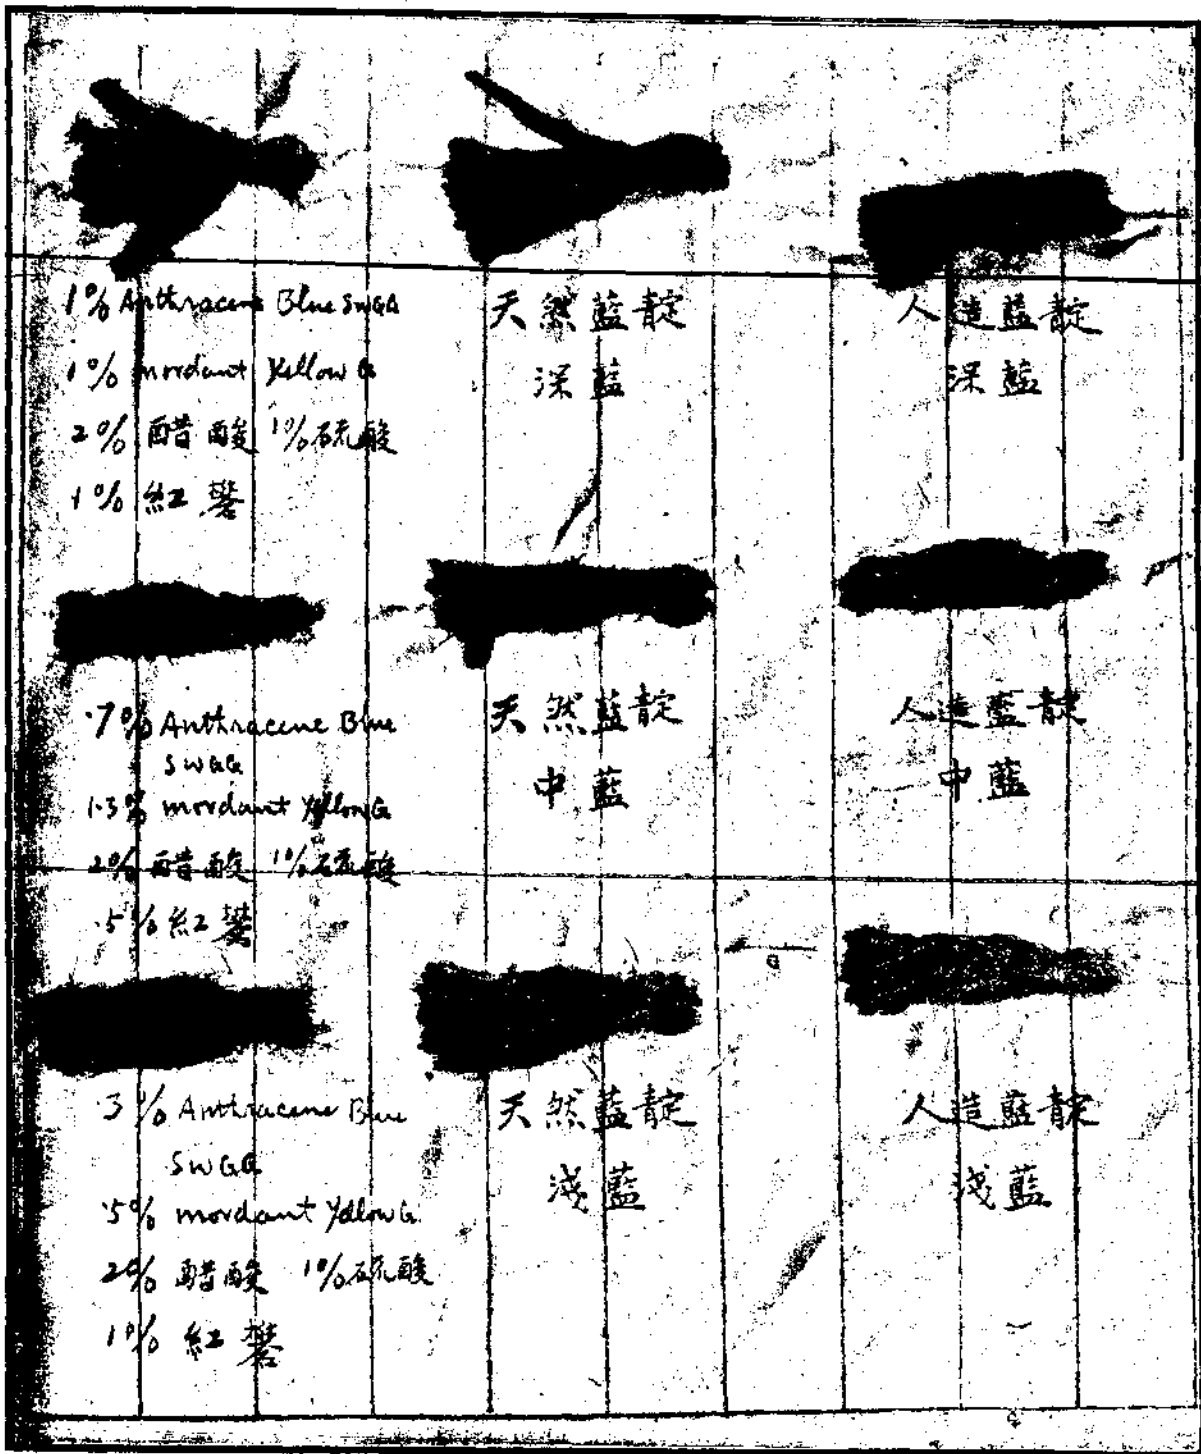 1% Anthracene Blue SWGG
1% mordant Yellow G
2% 醋酸 1% 硫酸
1% 紅礬
天然藍靛
深藍
人造藍靛
深藍
.7% Anthracene Blue
SWGG
1.3% mordant Yellow G
2% 醋酸 1% 硫酸
.5% 紅礬
天然藍靛
中藍
人造藍靛
中藍
.3% Anthracene Blue
SWGG
.5% mordant Yellow G
2% 醋酸 1% 硫酸
1% 紅礬
天然藍靛
淺藍
人造藍靛
淺藍